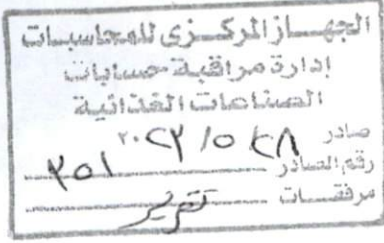 الجهــاز المركــزى للمحاسبــات
إدارة مراقبة حسابات
الصناعات الغذائية
صادر ٢٠٢٣/٥/٢٨
رقم الصادر ٣٥١
مرفقــات تقرير